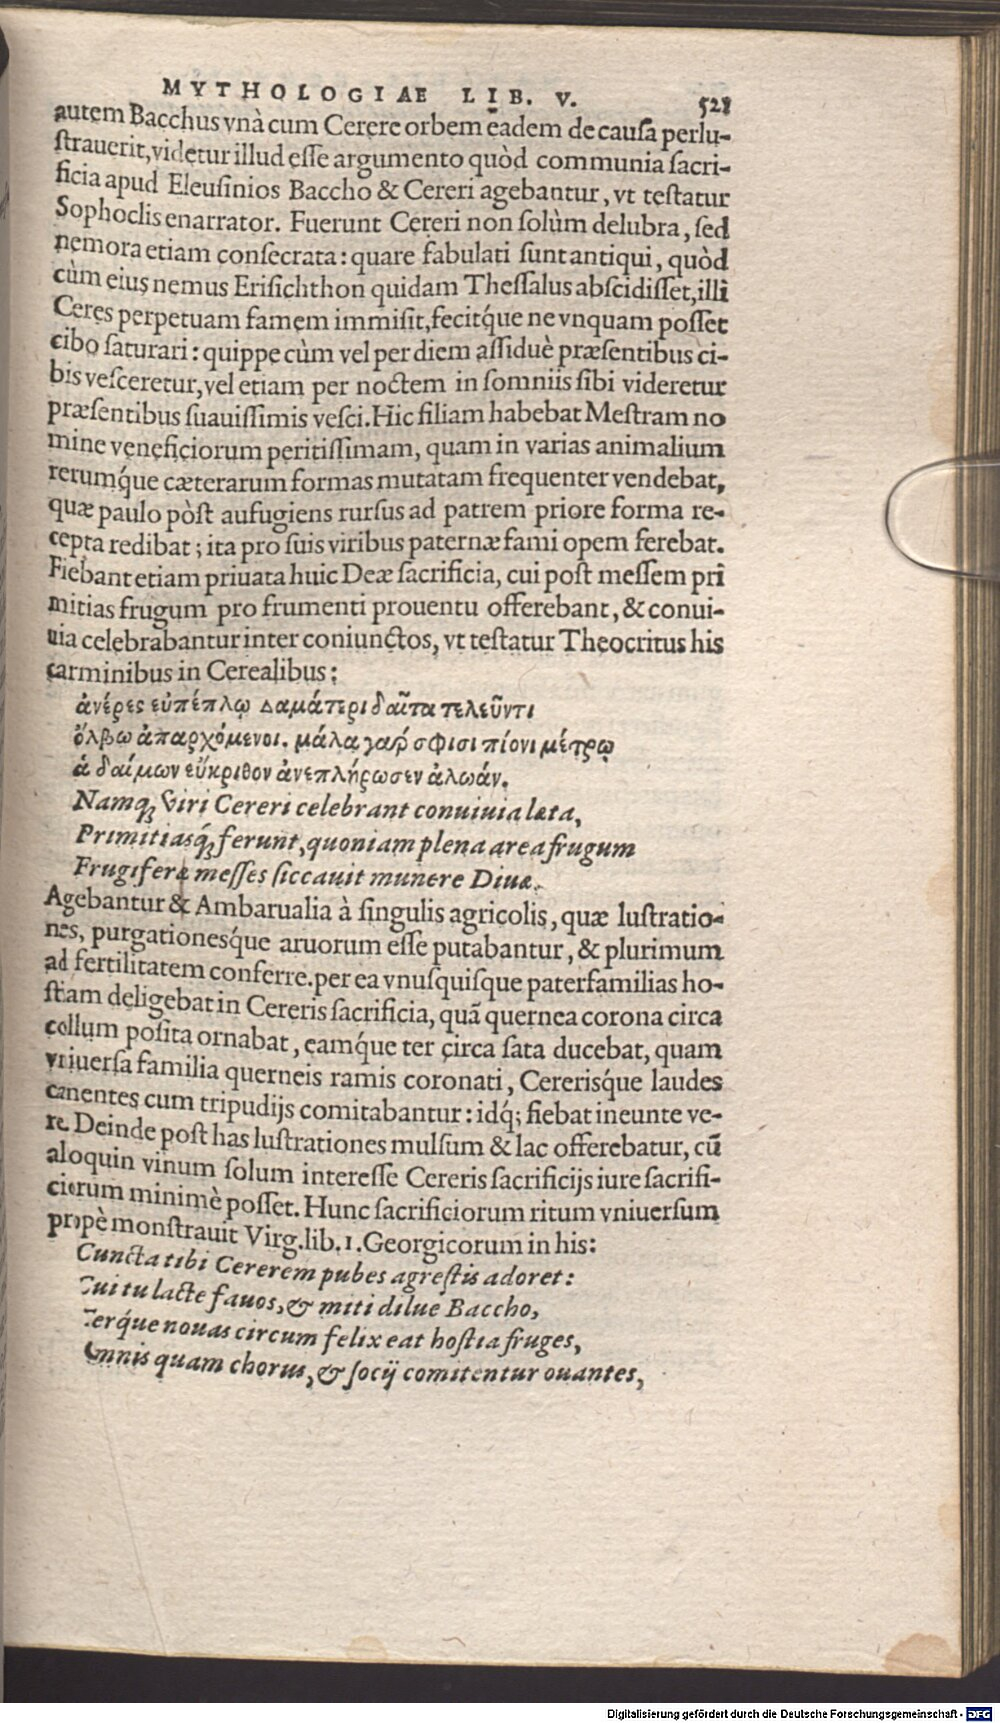 MYTHOLOGIAE LIB. V. 521
autem Bacchus vnà cum Cerere orbem eadem de causa perlu-
ſtrauerit, videtur illud eſſe argumento quòd communia ſacri-
ficia apud Eleuſinios Baccho & Cereri agebantur, vt teſtatur
Sophoclis enarrator. Fuerunt Cereri non ſolùm delubra, ſed
nemora etiam conſecrata: quare fabulati ſunt antiqui, quòd
cùm eius nemus Eriſichthon quidam Theſſalus abſcidiſſet, illi
Ceres perpetuam famem immiſit, fecitq́ue ne vnquam poſſet
cibo ſaturari: quippe cùm vel per diem aſſiduè præſentibus ci-
bis veſceretur, vel etiam per noctem in ſomniis ſibi videretur
præſentibus ſuauiſſimis veſci. Hic filiam habebat Meſtram no
mine veneficiorum peritiſſimam, quam in varias animalium
rerumq́ue cæterarum formas mutatam frequenter vendebat,
quæ paulo pòſt aufugiens rurſus ad patrem priore forma re-
cepta redibat; ita pro ſuis viribus paternæ fami opem ferebat.
Fiebant etiam priuata huic Deæ ſacrificia, cui poſt meſſem pri
mitias frugum pro frumenti prouentu offerebant, & conui-
uia celebrabantur inter coniunctos, vt teſtatur Theocritus his
carminibus in Cerealibus:
ἀνέρες εὐπέπλῳ Δαμάτερι δαῖτα τελεῦντι
ὄλβω ἀπαρχόμενοι. μάλα γάρ σφισι πίονι μέτρῳ
ἁ δαίμων εὔκριθον ἀνεπλήρωσεν ἀλωάν.
Namq; Viri Cereri celebrant conuiuia læta,
Primitiasq́; ferunt, quoniam plena area frugum
Frugiferæ meſſes ſiccauit munere Diuæ.
Agebantur & Ambarualia à ſingulis agricolis, quæ luſtratio-
nes, purgationesq́ue aruorum eſſe putabantur, & plurimum
ad fertilitatem conferre. per ea vnuſquiſque paterfamilias ho-
ſtiam deligebat in Cereris ſacrificia, quã quernea corona circa
collum poſita ornabat, eamq́ue ter circa ſata ducebat, quam
vniuerſa familia querneis ramis coronati, Cererisq́ue laudes
canentes cum tripudijs comitabantur: idq́; fiebat ineunte ve-
re. Deinde poſt has luſtrationes mulſum & lac offerebatur, cũ
aloquin vinum ſolum intereſſe Cereris ſacrificijs iure ſacrifi-
ciorum minimè poſſet. Hunc ſacrificiorum ritum vniuerſum
propè monſtrauit Virg. lib. 1. Georgicorum in his:
Cuncta tibi Cererem pubes agreſtis adoret:
Cui tu lacte fauos, & miti dilue Baccho,
Terq́ue nouas circum felix eat hoſtia fruges,
Omnis quam chorus, & ſocij comitentur ouantes,
Digitalisierung gefördert durch die Deutsche Forschungsgemeinschaft - DFG